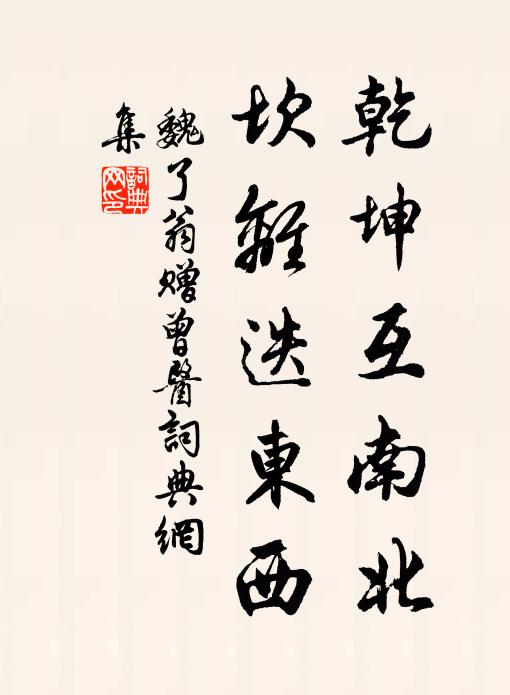 乾坤互南北
坎離迭東西
魏了翁贈曾醫詞典網
集
詞典
网印